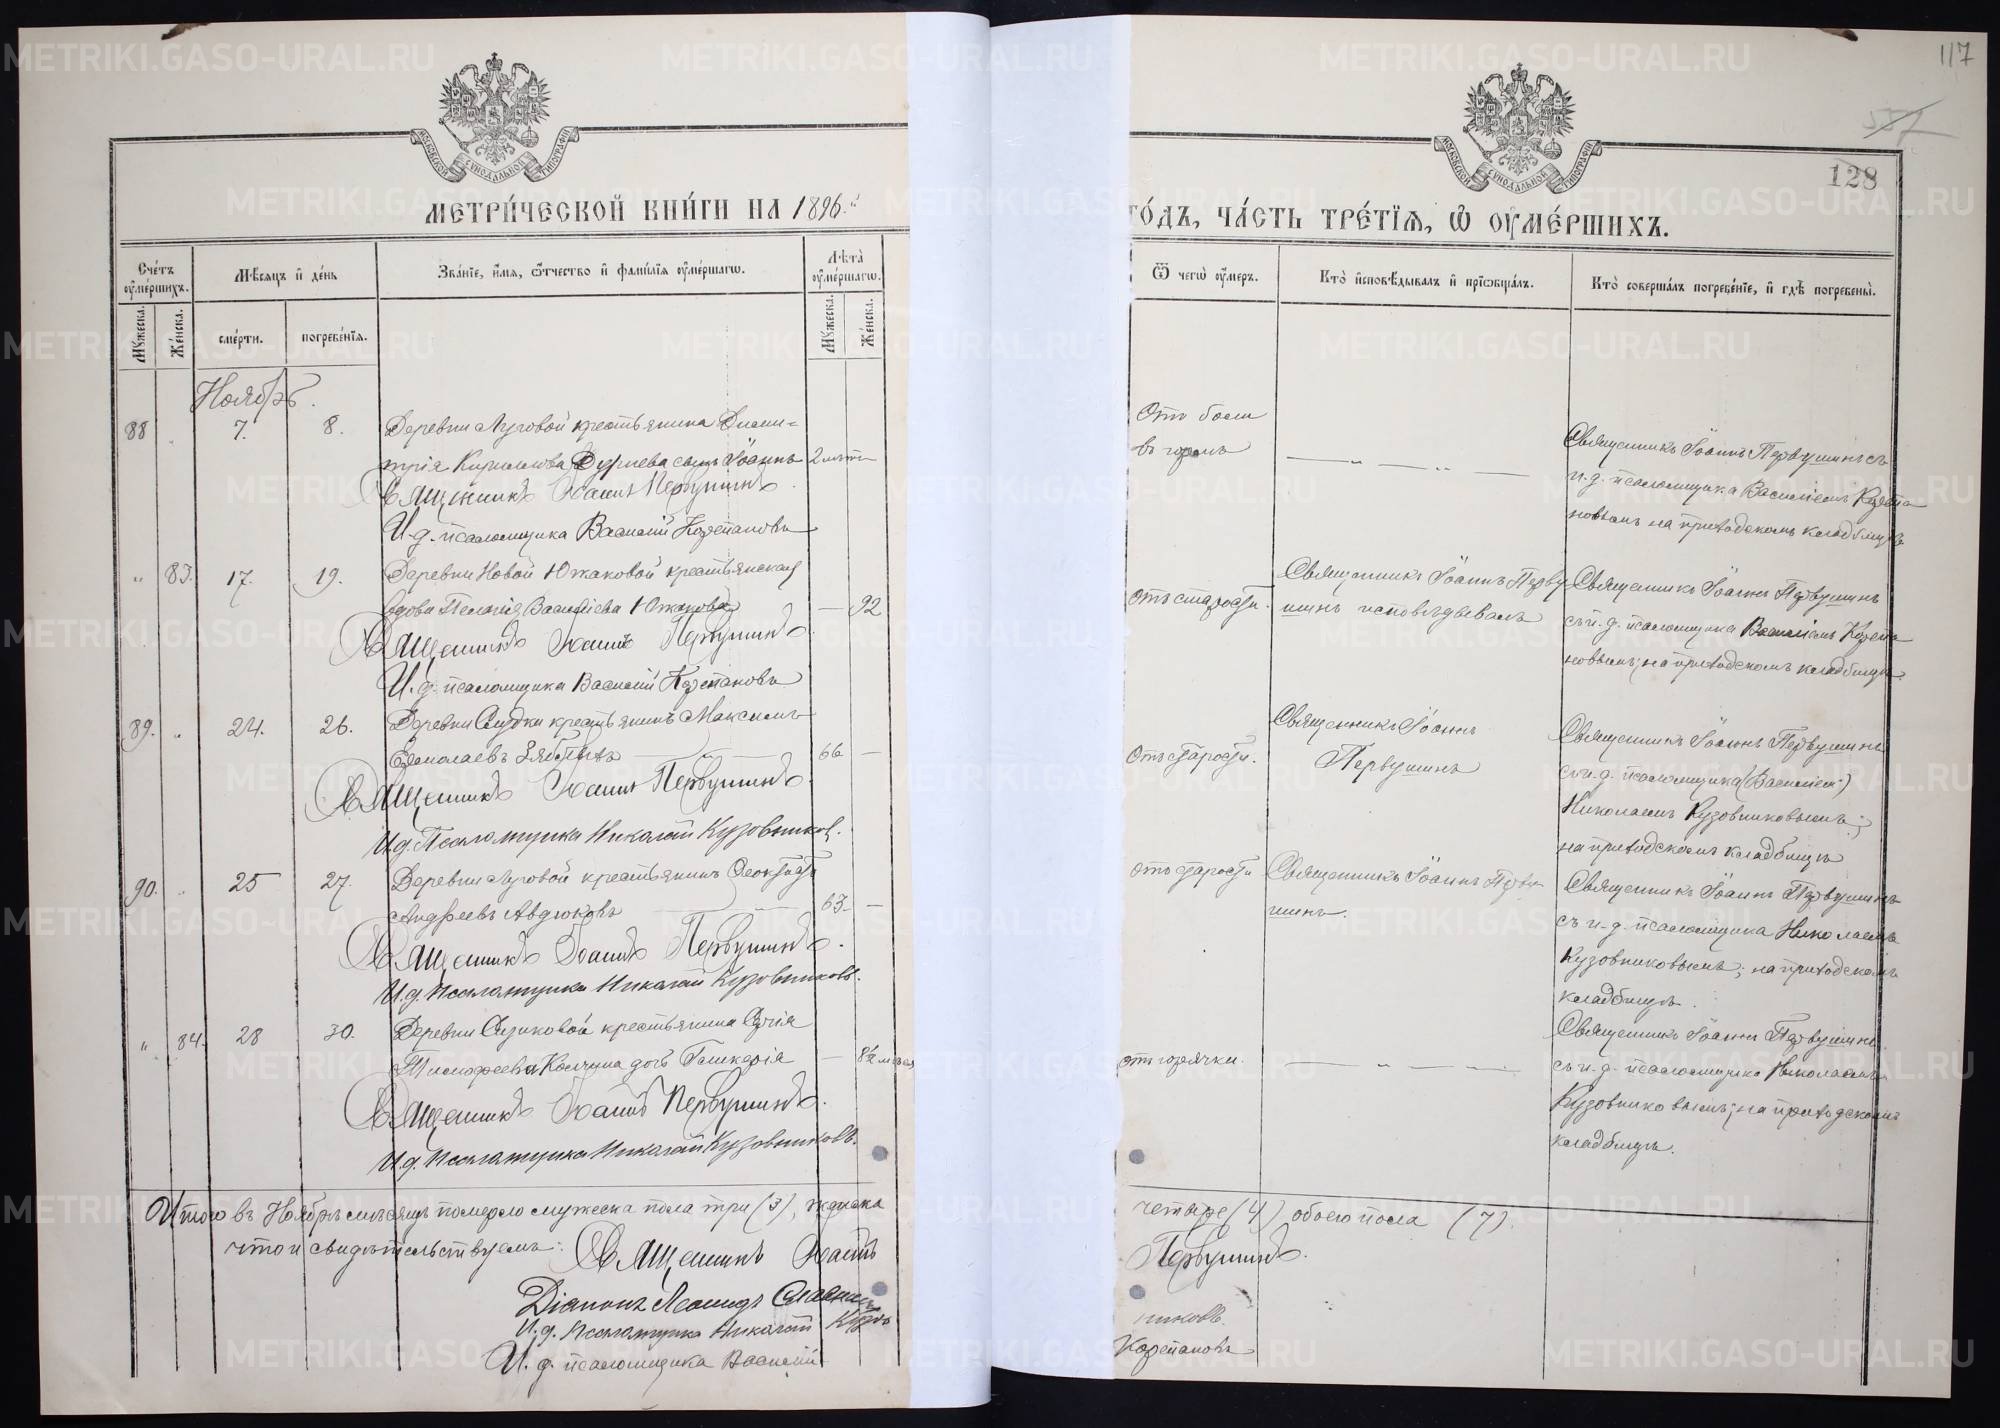 117
128
МОСКОВСКОЙ СѴНОДАЛЬНОЙ ТИПОГРАФІИ
МОСКОВСКОЙ СѴНОДАЛЬНОЙ ТИПОГРАФІИ
МЕТРИ́ЧЕСКОЙ КНИ́ГИ НА 1896.й
ГО́ДЪ, ЧА́СТЬ ТРЕ́ТІЯ, Ѽ ОУМЕ́РШИХЪ.
Сче́тъ оуме́ршихъ.
Мѣ́сяцъ и҆ де́нь
Зва́ніе, и҆́мя, ѻ҆́тчество и҆ фами́лія оуме́ршагѡ.
Лѣ́та оуме́ршагѡ.
Ѿ чегѡ̀ оу́меръ.
Кто̀ и҆сповѣ́дывалъ и҆ прїѡбща́лъ.
Кто̀ соверша́лъ погребе́ніе, и҆ гдѣ̀ погребены̀.
Мꙋ́жеска.
Же́нска.
сме́рти.
погребе́нїя.
Мꙋ́жеска.
Же́нска.
Ноябрь.
88 " 7. 8. Деревни Луговой крестьянина Дими=
трія Кириллова сынъ Іоаннъ 2 лѣтъ
Священникъ Іоаннъ Первушинъ.
И. д. псаломщика Василій Корепановъ
Отъ боли
въ горлѣ
Священникъ Іоаннъ Первушинъ съ
и. д. псаломщика Василіемъ Корепа
новымъ на приходскомъ кладбищѣ
" 83. 17. 19. Деревни Новой Южаковой крестьянская
вдова Пелагія Васильева Южакова — 92
Священникъ Іоаннъ Первушинъ.
И. д. псаломщика Василій Корепановъ
Отъ старости.
Священникъ Іоаннъ Перву
шинъ исповѣдывалъ
Священникъ Іоаннъ Первушинъ
съ и. д. псаломщика Василіемъ Корепа
новымъ; на приходскомъ кладбищѣ
89. " 24. 26. Деревни Слудки крестьянинъ Максимъ
Ермолаевъ Зяблыхъ 66 —
Священникъ Іоаннъ Первушинъ.
И. д. Псаломщика Николай Кузовниковъ.
Отъ старости.
Священникъ Іоаннъ
Первушинъ
Священникъ Іоаннъ Первушинъ
съ и. д. псаломщика (Василіем)
Николаемъ Кузовниковымъ;
на приходскомъ кладбищѣ
90. " 25 27. Деревни Луговой крестьянинъ Феоктистъ
Андреевъ Авдюковъ 63. —
Священникъ Іоаннъ Первушинъ.
И. д. Псаломщика Николай Кузовниковъ.
отъ старости
Священникъ Іоаннъ Перву
шинъ.
Священникъ Іоаннъ Первушинъ
съ и. д. псаломщика Николаемъ
Кузовниковымъ; на приходскомъ
кладбищѣ.
" 84. 28 30. Деревни крестьянина Сергія
Тимофеева дочь Гликерія —
Священникъ Іоаннъ Первушинъ.
И. д. Псаломщика Николай Кузовниковъ.
отъ горячки.
Священникъ Іоаннъ Первушинъ
съ и. д. псаломщика Николаемъ
Кузовниковымъ; на приходскомъ
кладбищѣ.
Итого въ Ноябрѣ мѣсяцѣ померло мужеска пола три (3), женска
четыре (4) обоего пола (7)
что и свидѣтельствуемъ: Священникъ Іоаннъ
Первушинъ.
Діаконъ Леонидъ
И. д. Псаломщика Николай Кузов
никовъ.
И. д. псаломщика Василій
Корепановъ
METRIKI.GASO-URAL.RU